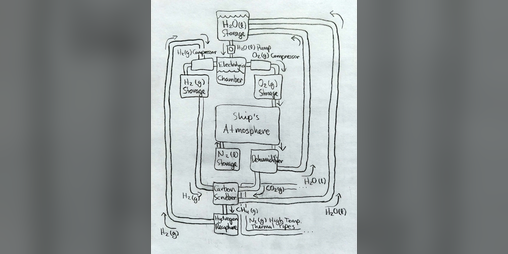 H₂O(l)
Storage
H₂O(l) Pump
H₂(g) Compressor
O₂(g) Compressor
Chamber
H₂(g)
Storage
O₂(g)
Storage
Ship's
Atmosphere
N₂(l)
Storage
Dehumidifier
H₂O(l)
Carbon
Scrubber
CO₂(g)
H₂(g)
H₂O(l)
CH₄(g)
Hydrogen
N₂(g) High Temp.
Thermal Pipes
H₂(g)